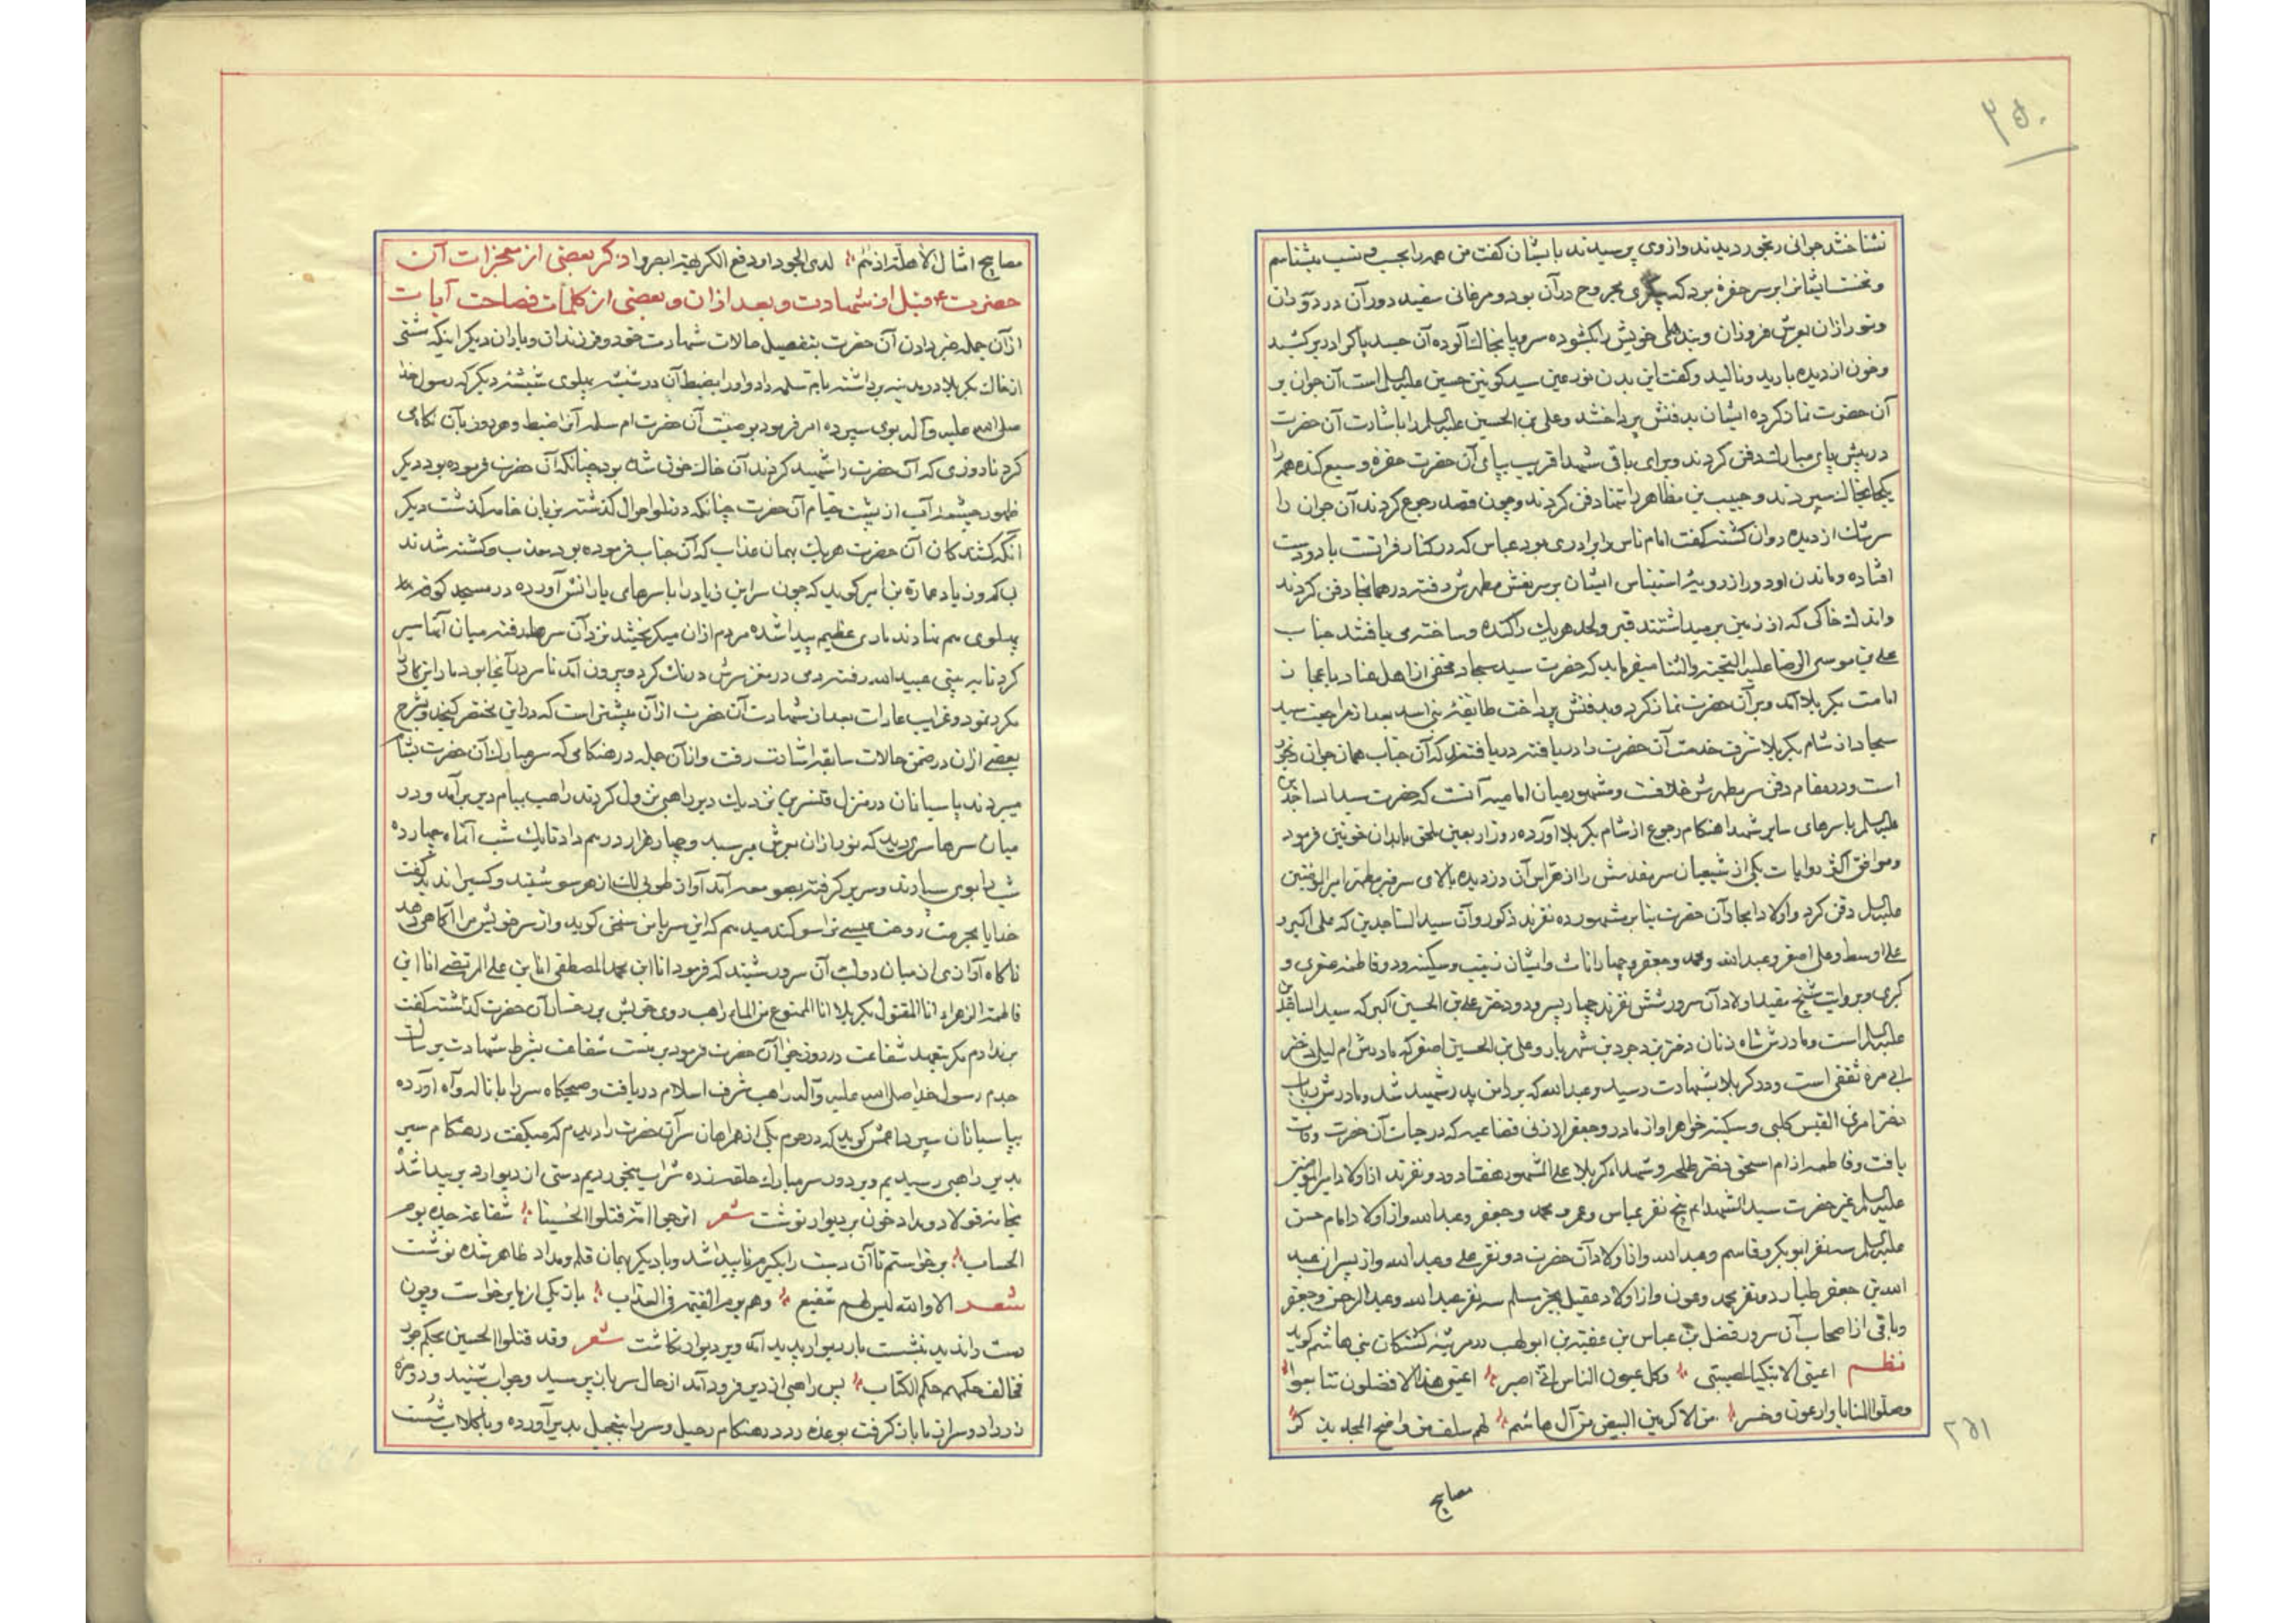 ۲۵۰
نشناختند جوانی رنجور دیدند و از وی پرسیدند بایشان گفت من همه را بحسب و نسب میشناسم
و نخست ایشانرا بر سر حفره برد که پیکری مجروح در آن بود و مرغانی سفید دور آن در دوران
و نور از آن بعرش فروزان و بندهای خویش را بگشوده سر و پا بخاک آلوده آن جسد پاک را در بر کشید
و خون از دیده بارید و نالید و گفت این بدن نور عین سید کونین حسین علیه السلم است آن جوان بر
آن حضرت نماز کرده ایشان بدفنش پرداختند و علی بن الحسین علیه السلم را باشارت آن حضرت
در پیش پای مبارک دفن کردند و برای باقی شهدا قریب بپای آن حضرت حفره وسیع کنده همه را
یکجا بخاک سپردند و حبیب بن مظاهر را تنها دفن کردند و چون قصد رجوع کردند آن جوان را
سرشک از دیده روان گشته گفت امام ناس را برادری بود عباس که در کنار فراتست با دو دست
افتاده و ماندن او دور از رویه استیناس ایشان بر سر نعش مطهرش رفته در همانجا دفن کردند
و اندک خاکی که از زمین بر میداشتند قبر و لحد هر یک را کنده و ساخته می یافتند جناب
علی بن موسی الرضا علیه التحیة و الثنا میفرماید که حضرت سید سجاد مخفی از اهل عناد باعجاز
امامت بکربلا آمد و بر آن حضرت نماز کرد و بدفنش پرداخت طایفه بنی اسد بعد از مراجعت سید
سجاد از شام بکربلا شرف خدمت آن حضرت را دریافته دریافتند که آن جناب همان جوان رنجور
است و در مقام دفن سر مطهرش خلافست و مشهور میان امامیه آنست که حضرت سید الساجدین
علیه السلم با سرهای سایر شهدا هنگام رجوع از شام بکربلا آورده روز اربعین ملحق بابدان خونین فرمود
و موافق اکثر روایات یکی از شیعیان سر مقدسش را از آن دزدیده بالای سر قبر مطهر امیر المؤمنین
علیه السلم دفن کرد و اولاد امجاد آن حضرت بنا بر مشهور ده نفرند ذکور و آن سید الساجدین که علی اکبر و
علی اوسط و علی اصغر و عبد الله و محمد و جعفر و چهار اناث و ایشان زینب و سکینه و دو فاطمه صغری و
کبری و بروایت شیخ مفید اولاد آن سرور شش نفرند چهار پسر و دو دختر علی بن الحسین اکبر که سید الساجدین
علیه السلم است و مادرش شاه زنان دختر یزدجرد بن شهریار و علی بن الحسین اصغر که مادرش ام لیلی دختر
ابی مره ثقفی است و در کربلا بشهادت رسید و عبد الله که بر دامن پدر شهید شد و مادرش رباب
دختر امرئ القیس کلبی و سکینه خواهر او از مادر و جعفر از زنی قضاعیه که در حیات آن حضرت وفات
یافت و فاطمه از ام اسحق دختر طلحه و شهداء کربلا علی المشهور هفتاد و دو نفرند از اولاد امیر المؤمنین
علیه السلم غیر حضرت سید الشهدا پنج نفر عباس و عمر و محمد و جعفر و عبد الله و از اولاد امام حسن
علیه السلم سه نفر ابو بکر و قاسم و عبد الله و از اولاد آن حضرت دو نفر علی و عبد الله و از پسران عبد
الله بن جعفر طیار دو نفر محمد و عون و از اولاد عقیل بجز مسلم سه نفر عبد الله و عبد الرحمن و جعفر
و باقی از اصحاب آن سرور فضل بن عباس بن عقبة بن ابو لهب در مرثیه کشتگان بنی هاشم گوید
نظم اعینی الا تبکیا لمصیبتی وکل عیون الناس عنی اصبر اعینی هذا الافضلون تتابعوا
وصلوا المنایا دارعون وخسر من الاکرمین البیض من آل هاشم لهم سلف من واضح المجد یذکر
۲۵۱
مصابیح
مصابیح امثال الاهلة اذ هم لدی الجود او دفع الکریهة ابصروا ذکر بعضی از معجزات آن
حضرت ع قبل از شهادت و بعد از آن و بعضی از کلمات فصاحت آیات
از آن جمله خبر دادن آن حضرت بتفصیل حالات شهادت خود و فرزندان و یاران دیگر اینکه مشتی
از خاک کربلا در مدینه برداشته بام سلمه داد و او را بضبط آن در شیشه پهلوی شیشه دیگر که رسول خدا
صلی الله علیه و آله بوی سپرده امر فرمود بوصیت آن حضرت ام سلمه آنرا ضبط و هر روز بآن نگاهی
کرد تا روزی که آن حضرت را شهید کردند آن خاک خون شده بود چنانکه آن حضرت فرموده بود دیگر
ظهور چشمه آب از پشت خیام آن حضرت چنانکه در طی احوال گذشته بزبان خامه گذشت دیگر
آنکه کشندگان آن حضرت هر یک بهمان عذاب که آن جناب فرموده بود معذب و کشته شدند
عمارة بن عمیر گوید که چون سر ابن زیاد را با سرهای یارانش آورده در مسجد کوفه
پهلوی هم نهادند ماری عظیم پیدا شده مردم از آن میگریختند نزد آن سرها رفته میان آنها سیر
کرد تا به بینی عبید الله رفته دمی در مغز سرش درنک کرد و بیرون آمد تا سر در آنجا بود مار این کار را
مکرر نمود و غرایب عادات بعد از شهادت آن حضرت از آن بیشتر است که در این مختصر گنجد و شرح
بعضی از آن در ضمن حالات سابقه اشارت رفت و از آن جمله در هنگامی که سر مبارک آن حضرت بشام
میبردند پاسبانان در منزل قنسرین نزدیک دیر راهبی نزول کردند راهب ببام دیر برآمد و در
میان سرها سری دید که نور از آن بعرش میرسید و چهار هزار درهم داد تا یک شب آنماه چهارده
شبه را بوی سپارند و سر بر گرفته بصومعه آمد آواز طوبی لک از هر سو شنید و کسیرا ندید گفت
خدایا بحرمت روحت عیسی ترا سوگند میدهم که این سر با من سخن گوید و از سر خویش مرا آگاهی دهد
ناگاه آوازی از میان دو لب آن سرور شنید که فرمود انا ابن محمد المصطفی انا ابن علی المرتضی انا ابن
فاطمة الزهراء انا المقتول بکربلا انا الممنوع من الماء راهب روی خویش بر رخسار آن حضرت گذاشت گفت
بر ندارم مگر بتعهد شفاعت در روز جزا آن حضرت فرمود بر تست شفاعت بشرط شهادت برسالت
جدم رسول خدا صلی الله علیه و آله راهب شرف اسلام دریافت و صبحگاه سر را با ناله و آه آورده
بپاسبانان سپرد اعمش گوید که در حرم یکی از همراهان سر آن حضرت را دیدم که میگفت در هنگام سیر
بدیر راهبی رسیدیم و بر دور سر مبارک حلقه زده شراب میخوردیم دستی از دیوار دیر پیدا شد
بخامه فولاد و مداد خون بر دیوار نوشت شعر اترجوا امة قتلوا الحسینا شفاعة جده یوم
الحساب برخواستم تا آن دست را بگیرم ناپیدا شد و بار دیگر بهمان قلم و مداد ظاهر شده نوشت
شعر الا والله لیس لهم شفیع وهم یوم القیمة فی العذاب باز یکی از ما برخواست و چون
دست را ندید بنشست باز دیوار پدید آمد و بر دیوار نگاشت شعر وقد قتلوا الحسین بحکم جور
فخالف حکمهم حکم الکتاب پس راهبی از دیر فرود آمد از حال سر باز پرسید و جواب شنید و ده بدره
زر داد و سر از ما باز گرفت بوعده رد در هنگام رحیل و سر را بتجلیل بدیر آورده و با گلاب شست